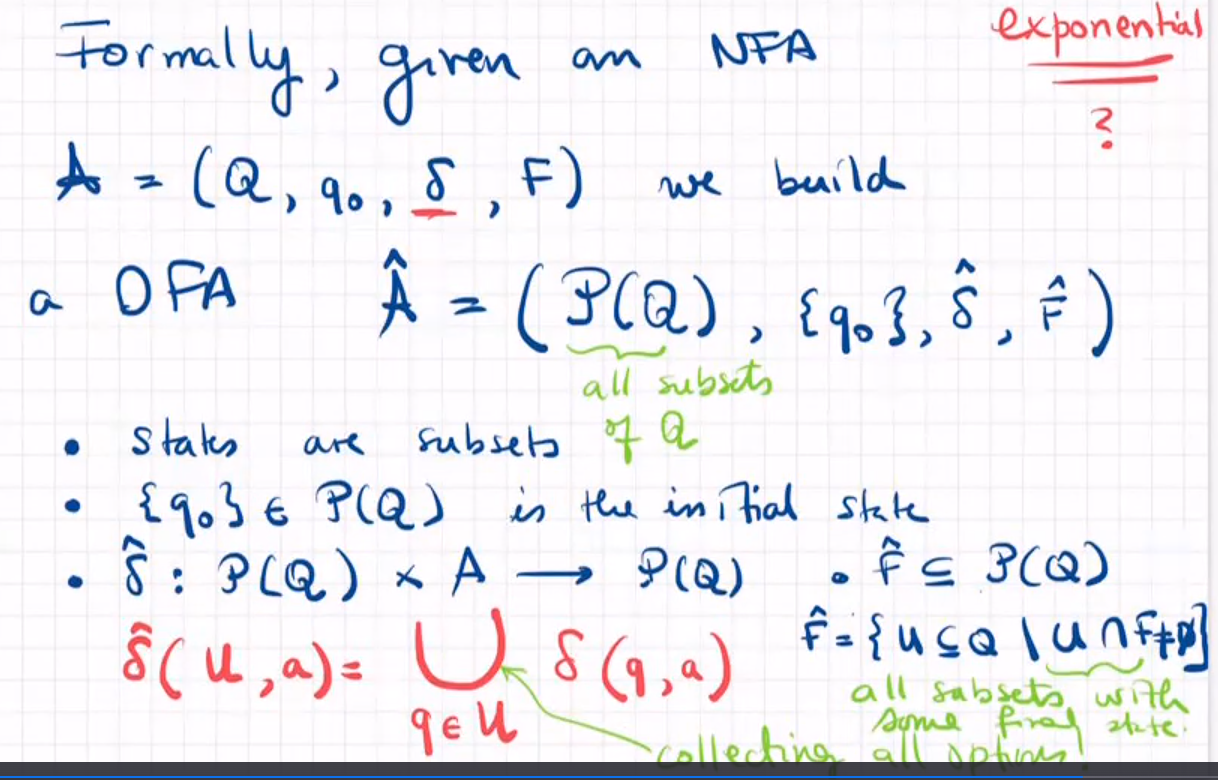 Formally, given an NFA
exponential
?
A = (Q, q₀, δ, F) we build
a DFA Â = (P(Q), {q₀}, δ̂, F̂)
all subsets
of Q
• states are subsets
• {q₀} ∈ P(Q) is the initial state
• δ̂ : P(Q) × A → P(Q) • F̂ ⊆ P(Q)
F̂ = {U ⊆ Q | U ∩ F ≠ ∅}
δ̂(U, a) = ⋃ δ(q, a)
q ∈ U
all subsets with
some final state.
collecting all options!